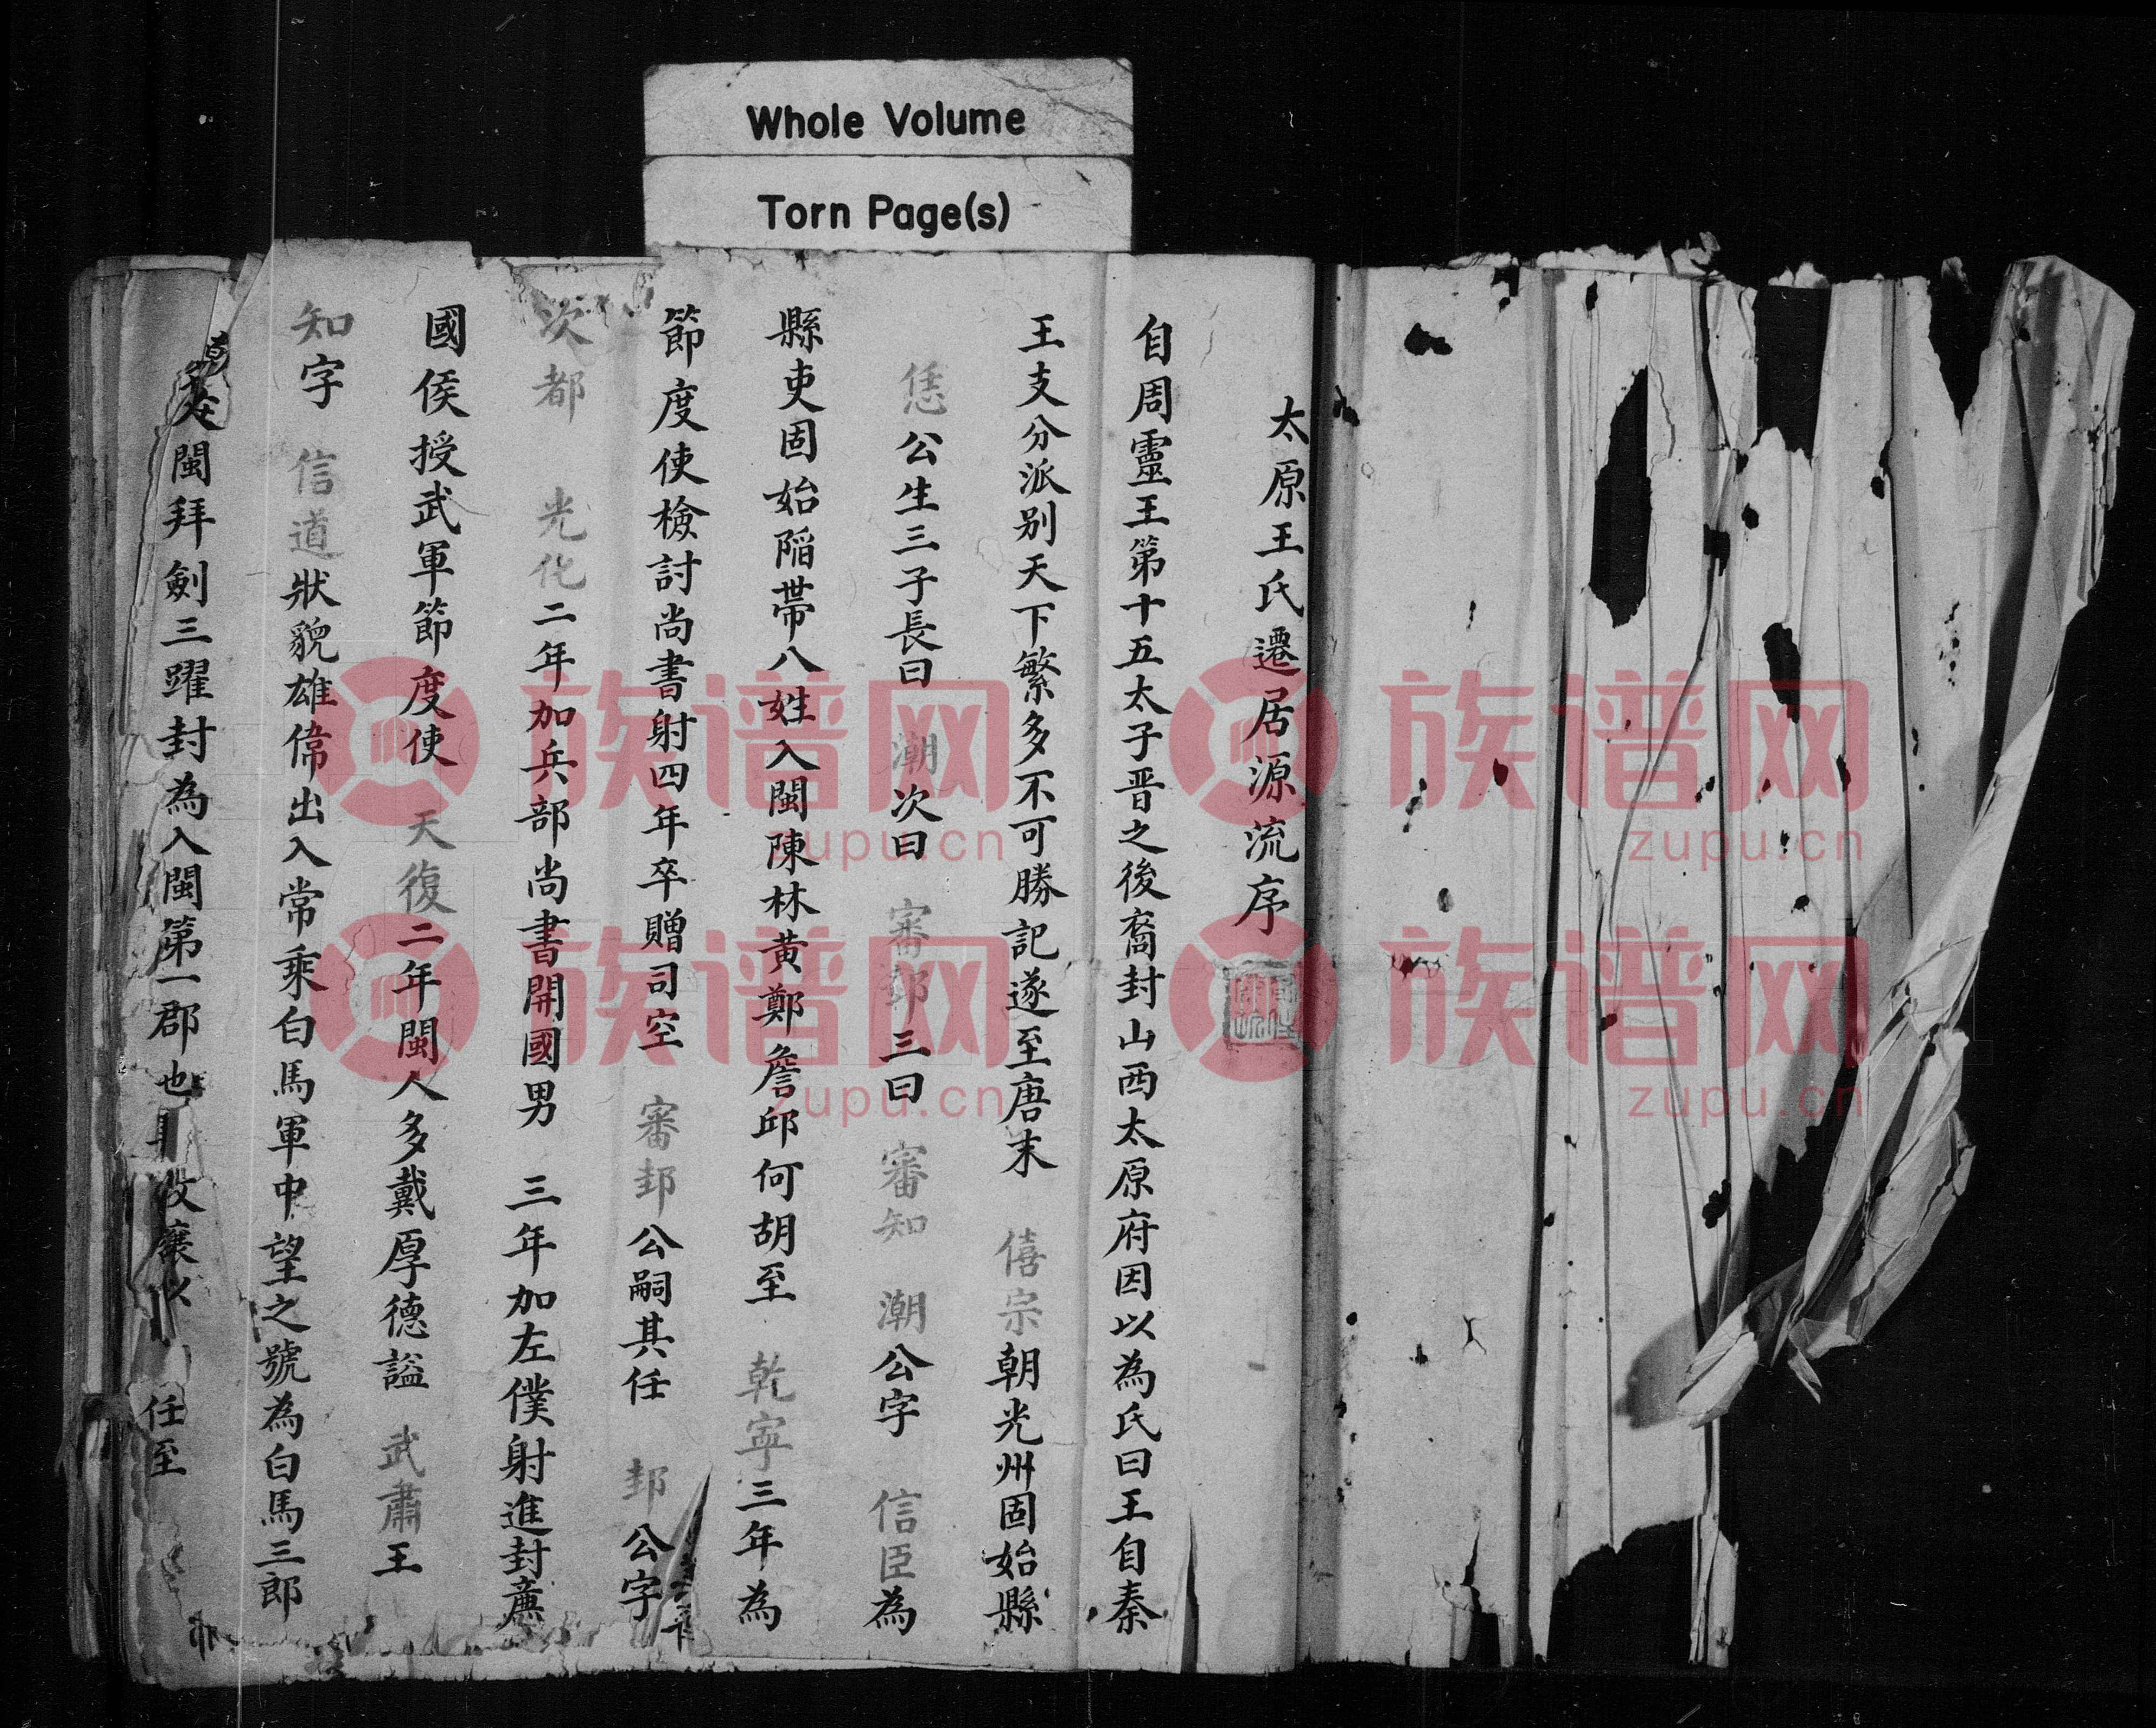 Whole Volume
Torn Page(s)
太原王氏遷居源流序
自周靈王第十五太子晋之後裔封山西太原府因以為氏曰王自秦
王支分派别天下繁多不可勝記遂至唐末 僖宗朝光州固始縣
恁公生三子長曰 潮次曰 審邽三曰 審知 潮公字 信臣為
縣吏固始陷帯八姓入閩陳林黄鄭詹邱何胡至 乾寧三年為
節度使檢討尚書射四年卒贈司空 審邽公嗣其任 邽公字
次都 光化二年加兵部尚書開國男 三年加左僕射進封
國侯授武軍節度使 天復二年閩人多戴厚德謚 武肅王
知字 信道狀貌雄偉出入常乘白馬軍中望之號為白馬三郎
閩拜劍三躍封為入閩第一郡也 任至
族谱网
zupu.cn
族谱网
zupu.cn
族谱网
zupu.cn
族谱网
zupu.cn